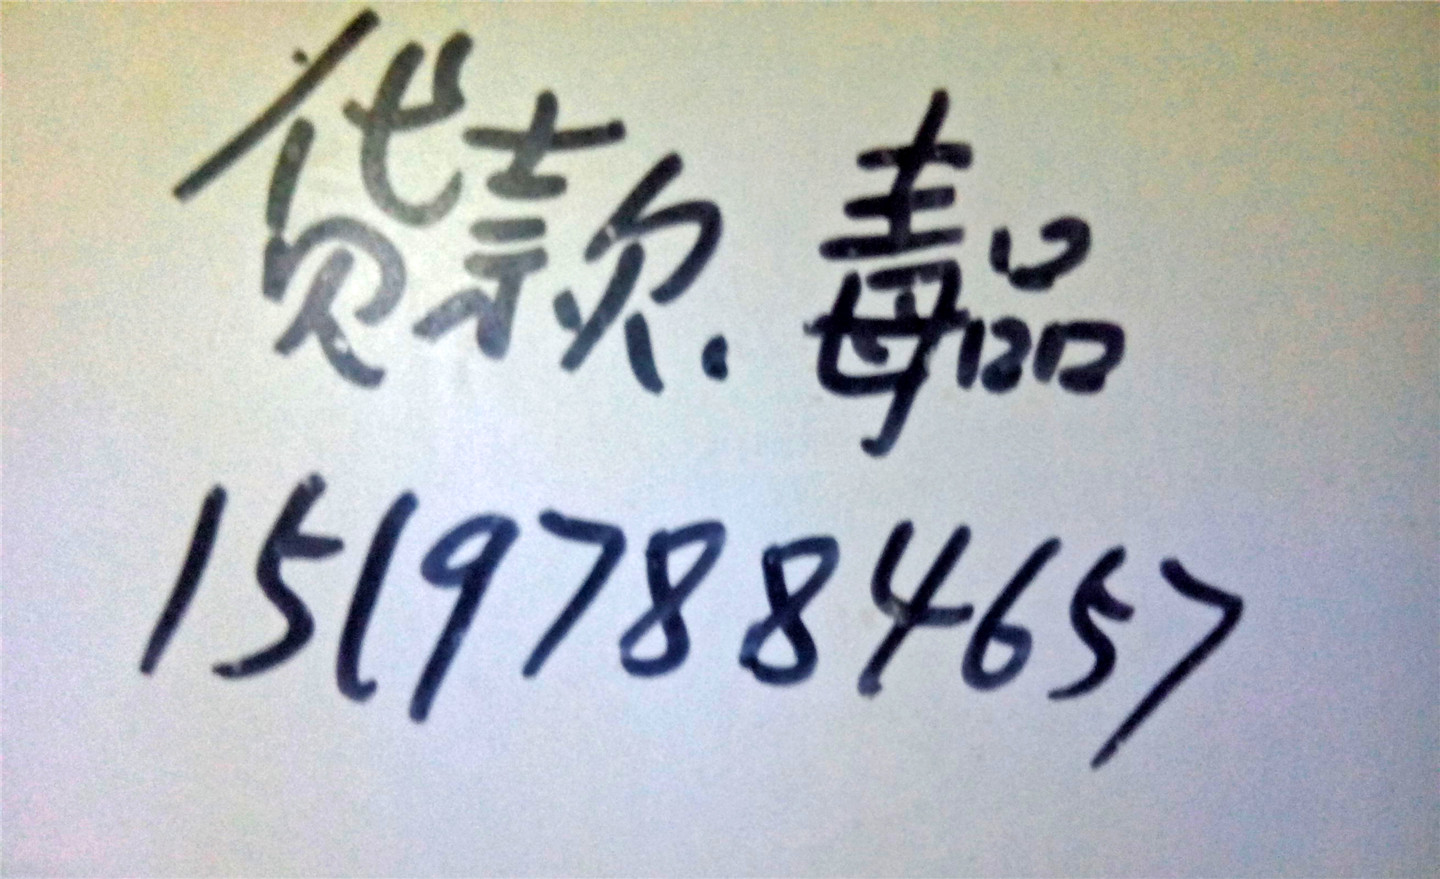 贷款.毒品
15197884657